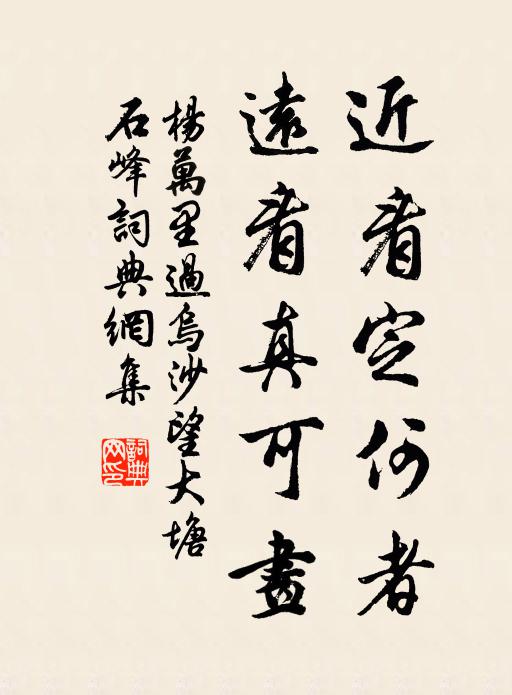 近看定何者
遠看真可畫
楊萬里過烏沙望大塘
石峰詞典網集
詞典网印